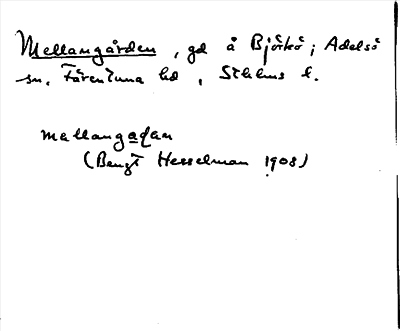 Mellangården, gd å Björkö; Adelsö
sn. Färentuna hd, Sthlms l.
mellang
(Bengt Hesselman 1908)